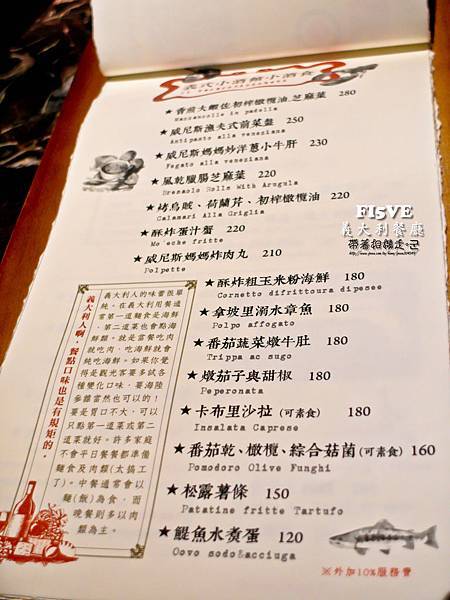 義式小酒館小酒食
★香煎大蝦佐初榨橄欖油.芝麻菜 280
Mazzancolle in padella
★威尼斯漁夫式前菜盤 250
Antipasto alla veneziana
★威尼斯媽媽炒洋蔥小牛肝 230
Fegato alla veneziana
★風乾臘腸芝麻菜 220
Bresaola Rolls With Arugula
★烤烏賊、荷蘭芹、初榨橄欖油 220
Calamari Alla Griglia
★酥炸蛋汁蟹 220
Mo'eche fritte
★威尼斯媽媽炸肉丸 210
Polpette
★酥炸粗玉米粉海鮮 180
Cornetto difrittoura dipesee
★拿坡里溺水章魚 180
Polpo affogato
★番茄蔬菜燉牛肚 180
Trippa ac sugo
★燉茄子與甜椒 180
Peperonata
★卡布里沙拉(可素食) 180
Insalata Caprese
★番茄乾、橄欖、綜合菇菌(可素食) 160
Pomodoro Olive Funghi
★松露薯條 150
Patatine fritte Tartufo
★鯷魚水煮蛋 120
Oovo sodo&acciuga
※外加10%服務費
義大利人啊,餐點口味也是有規矩的。
義大利人的味蕾很單
純。在義大利用餐通
常第一道麵食是海鮮
,第二道菜也會點海
鮮類。就是當餐吃肉
就吃肉,吃海鮮就會
純吃海鮮。如果你覺
得是觀光客要多試各
種變化口味,要海陸
參雜當然也可以的!
要是胃口不大,可以
只點第一道菜或第二
道菜就好。許多家庭
不會平日餐餐都準備
麵食及肉類(太搞工
了)。中餐通常會以
麵(飯)為食,而
晚餐則多以肉
類為主。
FI5VE
義大利餐廳
帶著相機走·己